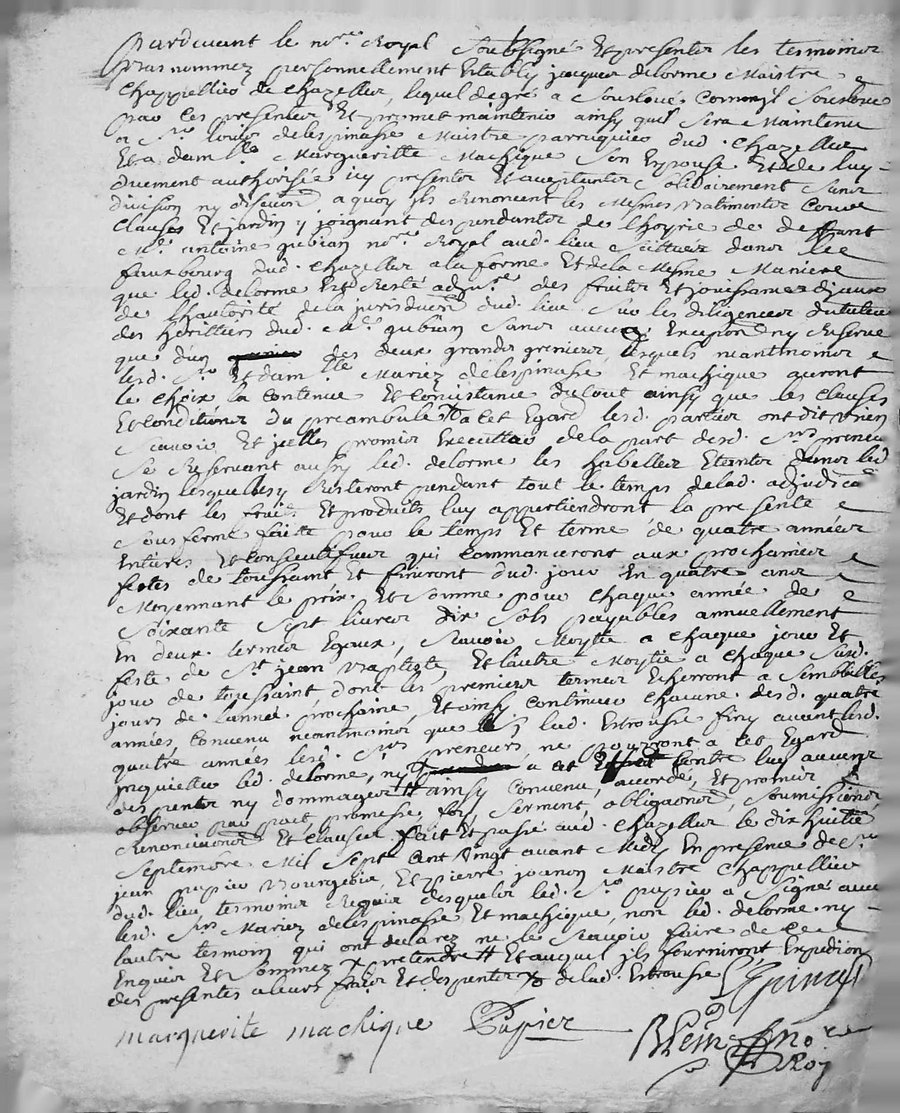 Pardevant le no.re Royal Soubsigné Et presenter les tesmoinor
bas nommez personnellement Estably jacquer delorme Maistre
Chappellier de Chazeller, lequel de gré a Sousloué Comme jl Souslouë
par ces presenter Et promet maintenir ainsy quil Sera Maintenu
a S.r Louis delespinasse Maistre parruquier dud. Chazeller
Et a dam.lle Margueritte Machique Son Espouse Et de luy
duement authorisée icy presenter Et acceptanter Solidairement Sanr
division ny a quoy jls Renoncent les Mesmes batimenter Couve
Clauses Et jardin y joignant despendanter de lhoyrie de deffunt
M.e antoine gubian no.re Royal aud. lieu Scituez danr le
fauxbourg dud. Chazeller a la forme Et de la Mesme Maniere
que led. delorme Est Resté adju.re des fruiter Et jouissancer djceux
de lhautorité de la jurisdiction dud. lieu Sur les diligencer du tuteur
des heritiers dud. M.e gubian Sanr aucune Exception ny Reserve
que d'un des deux grandr grenierr, lesquels neantmoinr
lesd. S.r Et dam.lle Mariez delespinasse Et machique auront
le choix la contenue Et Consistance du tout ainsy que les Clauses
Et Conditionr du preambule a cet Egard lesd. partier ont dit bien
Scavoir Et jcelles promir Executter de la part desd. S.rs preneu
Se Reservant aussy led. delorme les habeiller Estanter danr led
jardin lesquelles y Resteront pendant tout le temps de lad. adjudica.on
Et dont les fruits Et produits luy appartiendront la presente
Sousferme faitte pour le temps Et terme de quatre annéer
Entieres Et Consecutifuer qui Commanceront aux prochainer
festes de toussaint Et finiront dud. jour En quatre anr
Moyennant le prix Et Somme pour chaque année de
Soixante Sept livrer dix Sols payables annuellement
En deux termer Egaux, Scavoir Moytié a Chaque jour Et
feste de S.t jean Baptiste, Et lautre Moytié a Chaque Susd.
jour de toussaint dont les premierr termer Escherront a Semblables
jours de lannée prochaine, Et ainsy Continuer chacune desd. quatre
années, Convenu neantmoinr que Si lad. Estrousse finy avant lesd.
quatre années lesd. S.rs preneurs ne pourront a cet Egard
jnquietter led. delorme, ny a cet Effect Contre luy aucunr
despentr ny dommager ainsy Convenu, accordé, Et promir
observer par pact promesse, foy, Serment, obligaonr, Soumissionr
Renonciaonr Et Clauser fait Et passé aud. Chazeller le dix huitie
Septembre Mil Sept Cent Vingt avant Midy En presence de S.r
jean pupier Bourgeoir, Et pierre joanon Maistre Chappellier
dud. lieu tesmoinr Requir desqueler led. S.r pupier a Signé avec
lesd. S.rs Mariez delespinasse Et machique, non led. delorme ny
lautre tesmoin qui ont declarez ne le Scavoir faire de ce
Enquir Et Sommez pretendre Et auquel jls fourniront Expedion
des presentes a leurs frair Et despenter de lad. Estrousse
marguerite machique Pupier
no.re Roy